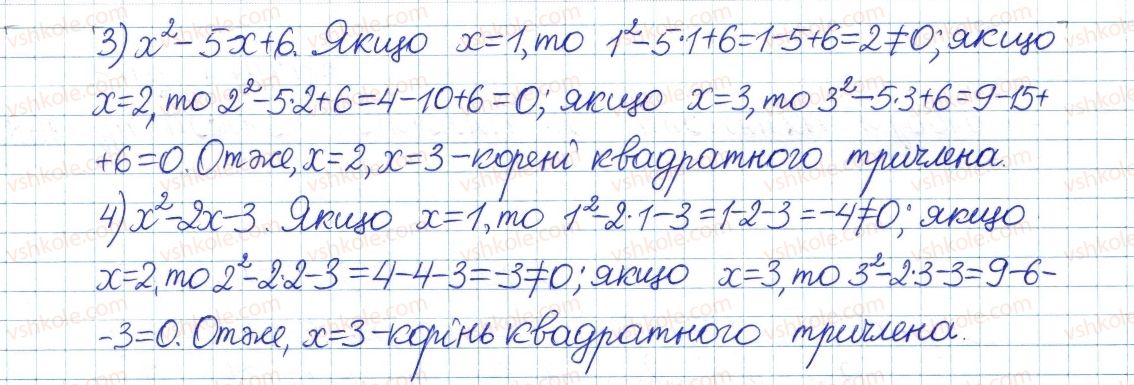 3) x²-5x+6. Якщо x=1, то 1²-5·1+6=1-5+6=2≠0; якщо
x=2, то 2²-5·2+6=4-10+6=0; якщо x=3, то 3²-5·3+6=9-15+
+6=0. Отже, x=2, x=3 - корені квадратного тричлена.
4) x²-2x-3. Якщо x=1, то 1²-2·1-3=1-2-3=-4≠0; якщо
x=2, то 2²-2·2-3=4-4-3=-3≠0; якщо x=3, то 3²-2·3-3=9-6-
-3=0. Отже, x=3 - корінь квадратного тричлена.